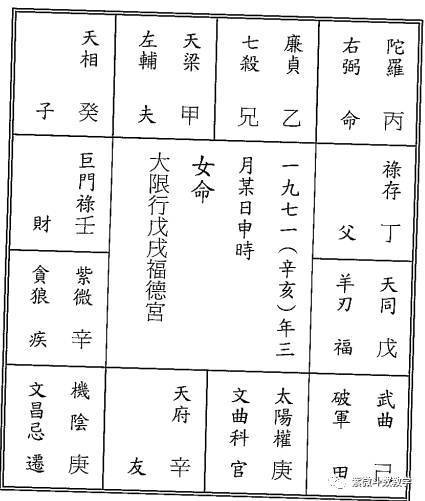 陀羅 丙
右弼 命
廉貞 乙
七殺 兄
天梁 甲
左輔 夫
天相 癸
子
祿存 丁
父
一九七一(辛亥)年三
月某日申時
女命
大限行戊戌福德宮
巨門祿壬
財
天同 戊
羊刃 福
紫微 辛
貪狼 疾
武曲 己
破軍 田
太陽權庚
文曲科 官
天府 辛
友
機陰 庚
文昌忌 遷
紫微斗数教学